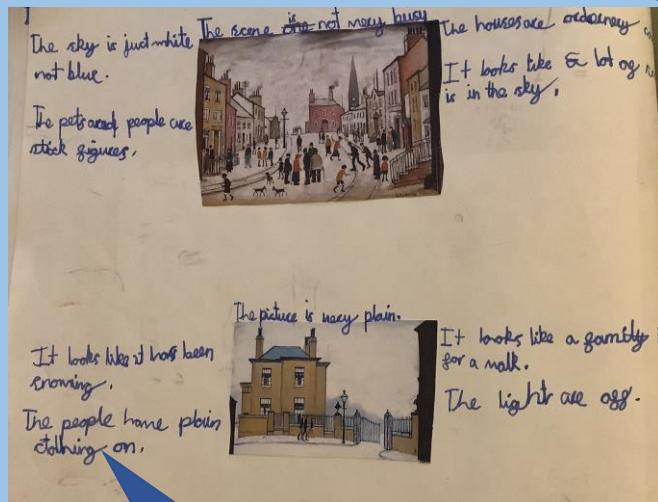 The sky is just white
not blue.
The pets and people are
stick figures.
The scene is not very busy
The houses are ordernery
It looks like a lot of
is in the sky.
The picture is very plain.
It looks like it has been
snowing.
The people have plain
clothing on.
It looks like a family
for a walk.
The light are off.